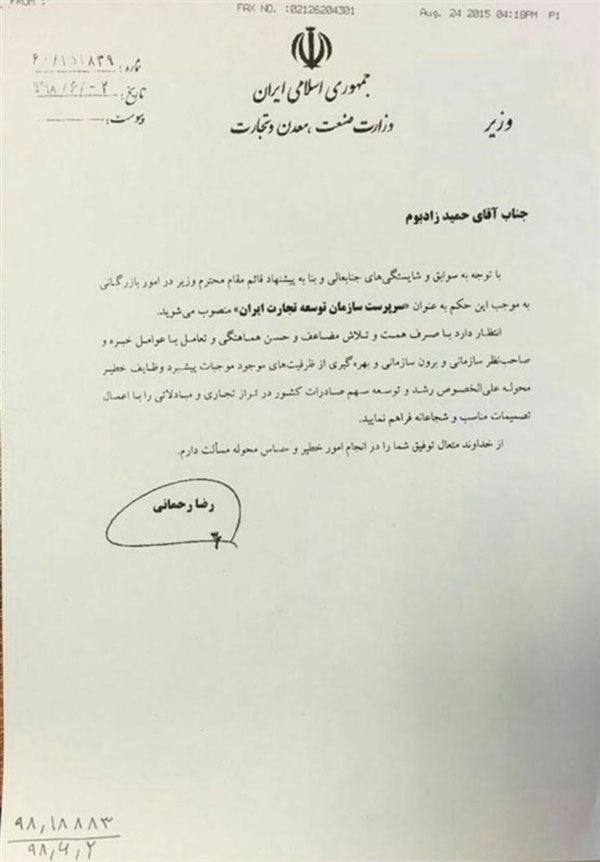 FROM :
FAX NO. :02126204301
Aug. 24 2015 04:18PM P1
جمهوری اسلامی ایران
وزارت صنعت، معدن و تجارت
وزیر
شماره: ۶۰/۱۵۱۸۳۹
تاریخ: ۱۳۹۸/۶/۰۲
پیوست:
جناب آقای حمید زادبوم
با توجه به سوابق و شایستگی‌های جنابعالی و بنا به پیشنهاد قائم مقام محترم وزیر در امور بازرگانی
به موجب این حکم به عنوان «سرپرست سازمان توسعه تجارت ایران» منصوب می‌شوید.
انتظار دارد با صرف همت و تلاش مضاعف و حسن هماهنگی و تعامل با عوامل خبره و
صاحب‌نظر سازمانی و برون سازمانی و بهره‌گیری از ظرفیت‌های موجود موجبات پیشبرد وظایف خطیر
محوله علی‌الخصوص رشد و توسعه سهم صادرات کشور در تراز تجاری و مبادلاتی را با اعمال
تصمیمات مناسب و شجاعانه فراهم نمایید.
از خداوند متعال توفیق شما را در انجام امور خطیر و حساس محوله مسألت دارم.
رضا رحمانی
۹۸,۱۸۸۸۳
۹۸,۶,۲